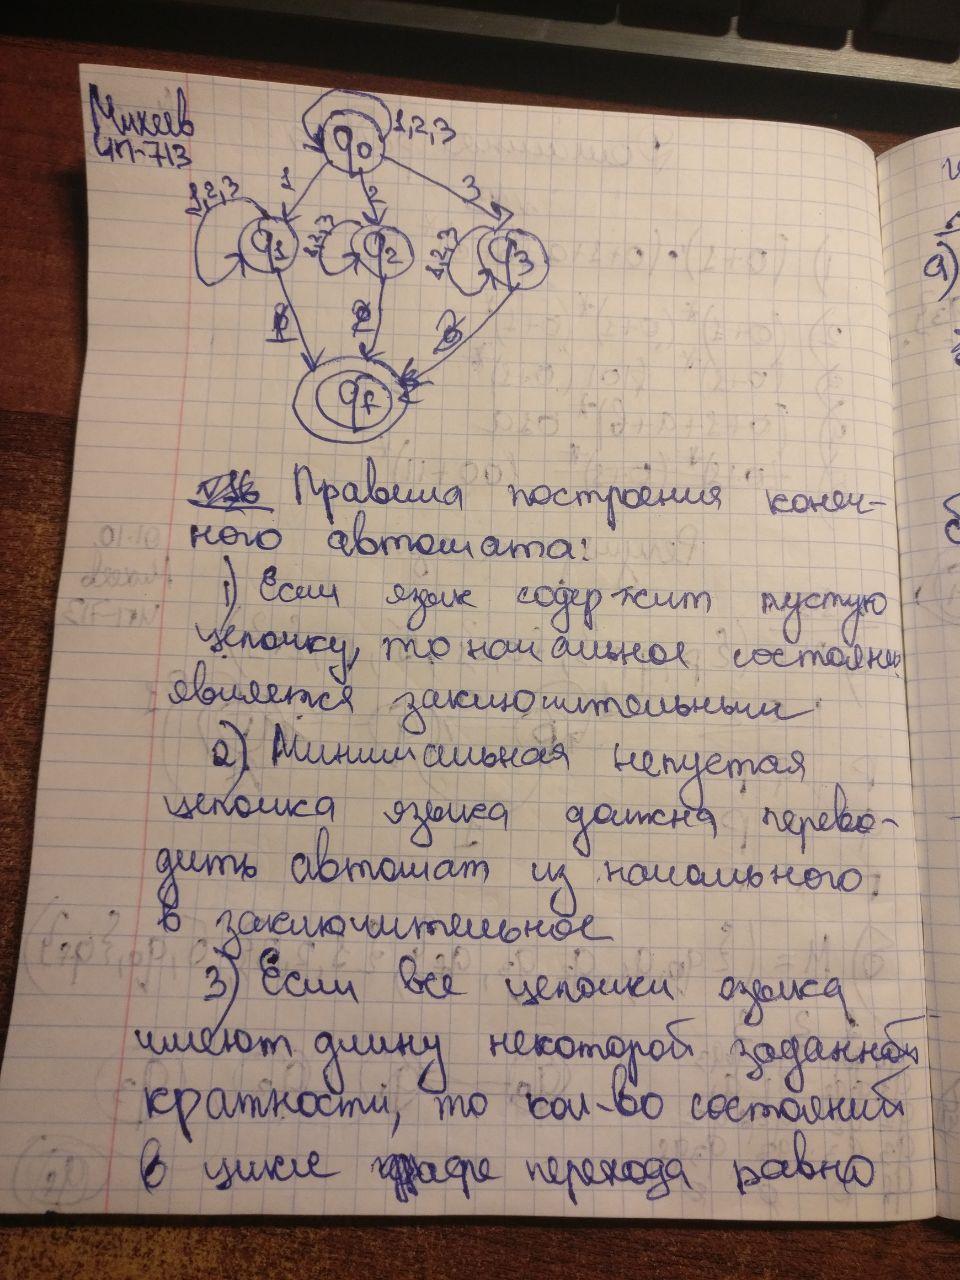 Михеев
ИП-713
q0
1,2,3
1
2
3
1,2,3
q1
1,2,3
q2
1,2,3
q3
qf
Правила построения конеч-
ного автомата:
1) Если язык содержит пустую
цепочку, то начальное состояние
является заключительным
2) Минимальная непустая
цепочка языка должна перево-
дить автомат из начального
в заключительное
3) Если все цепочки языка
имеют длину некоторой заданной
кратности, то кол-во состояний
в цикле графе перехода равно